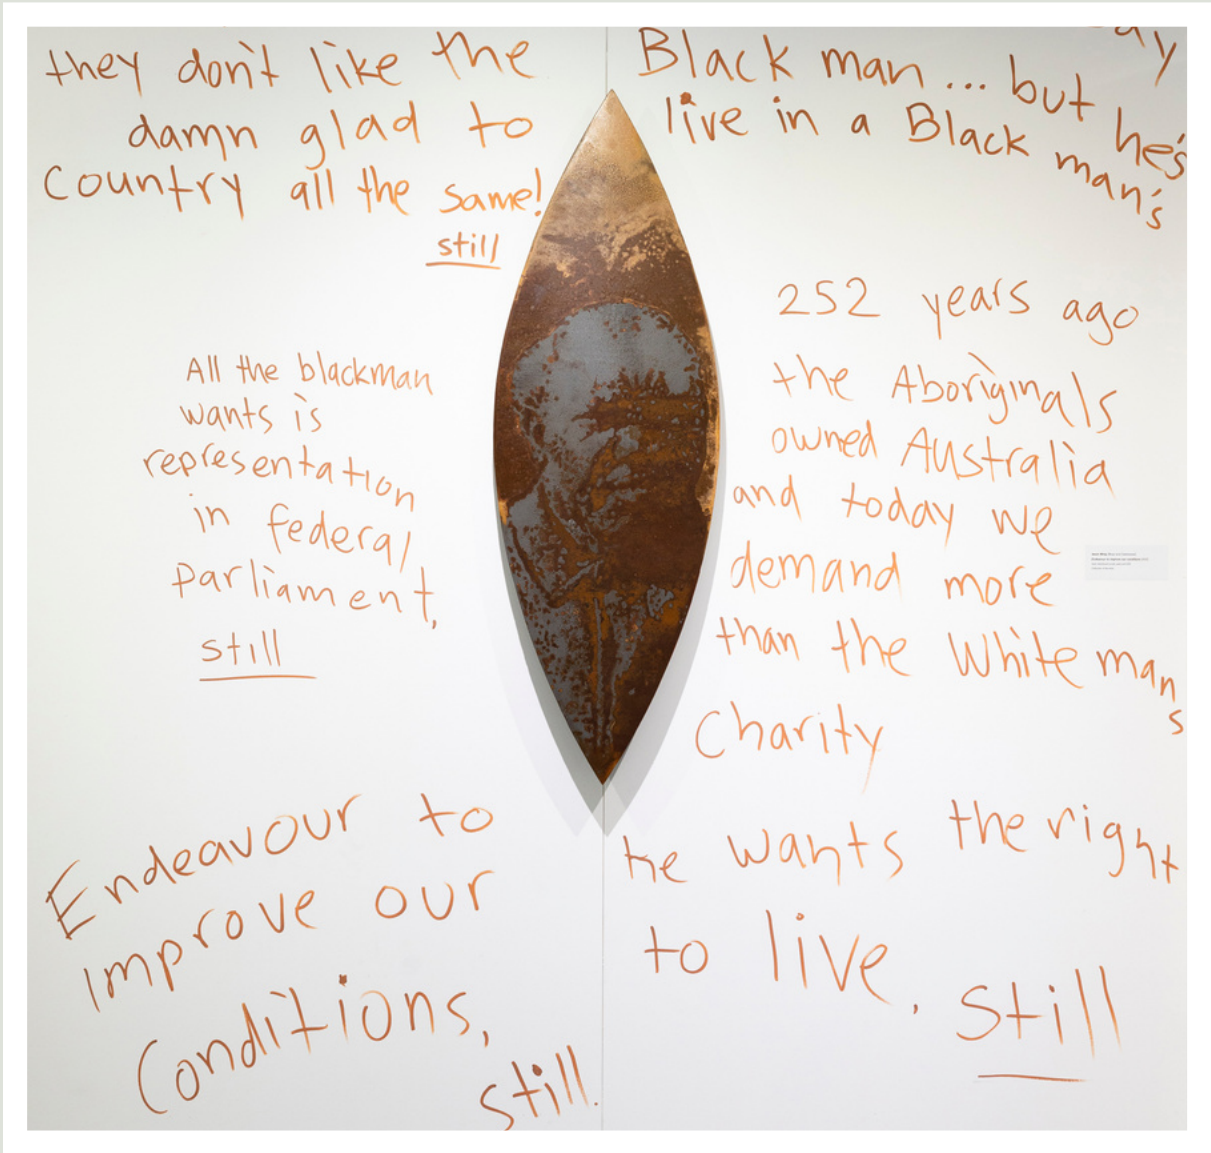 they don't like the Black man ... but he's
damn glad to live in a Black man's
Country all the same!
still
All the blackman
wants is
representation
in federal
parliament,
still
252 years ago
the Aboriginals
owned Australia
and today we
demand more
than the White mans
Charity
he wants the right
to live, still
Endeavour to
improve our
Conditions,
still.